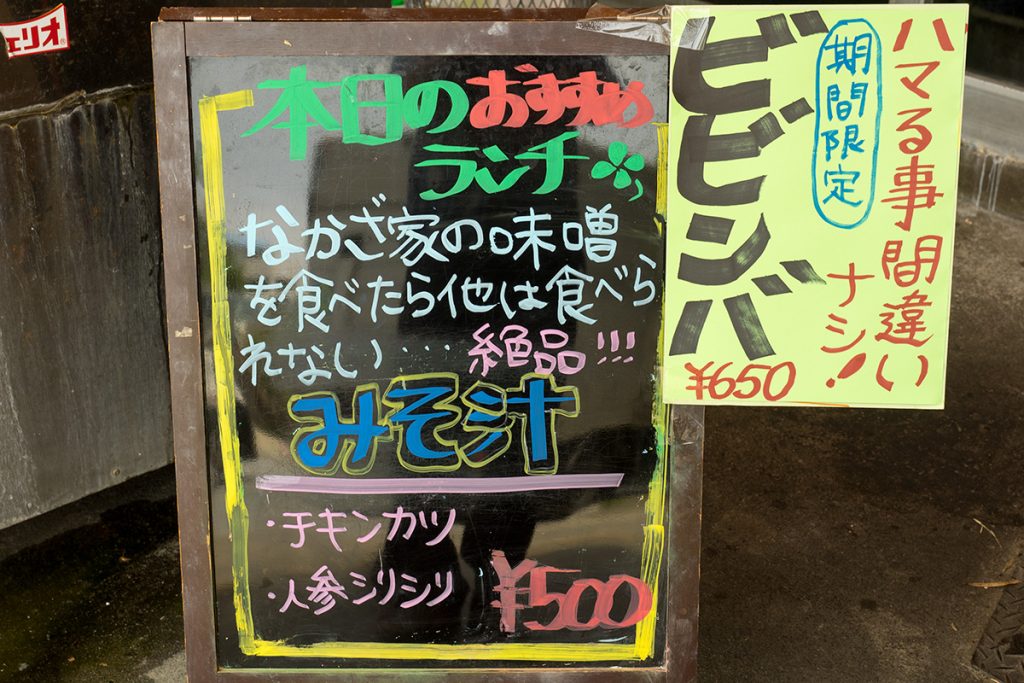 ェリオ
本日のおすすめ
ランチ
なかざ家の味噌
を食べたら他は食べら
れない・・・絶品!!!
みそ汁
・チキンカツ
・人参シリシリ
¥500
ハマる事間違い
ナシ!
期間限定
ビビンバ
¥650